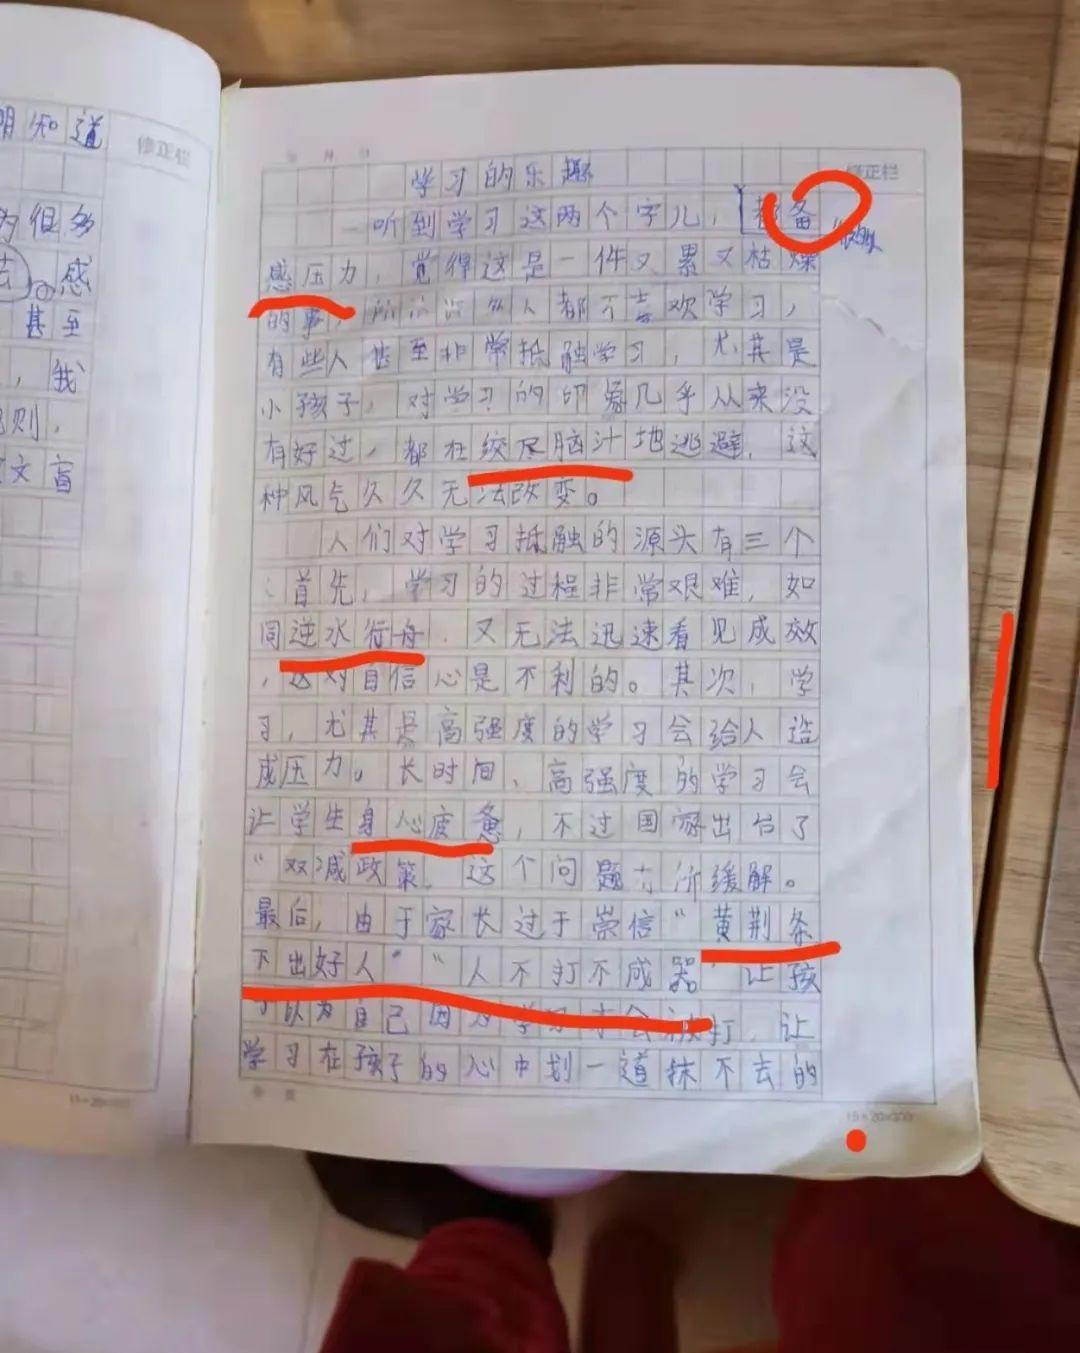 明知道
为但多
去。感
甚至
，我
规则，
文盲
修正栏
15×20=300
年 月 日
修正栏
学习的乐趣
一听到学习这两个字儿，都备
感压力，觉得这是一件又累又枯燥
的事，所以许多人都不喜欢学习，
有些人甚至非常抵触学习，尤其是
小孩子，对学习的印象几乎从来没
有好过，都在绞尽脑汁地逃避，这
种风气久久无法改变。
人们对学习抵触的源头有三个
：首先，学习的过程非常艰难，如
同逆水行舟，又无法迅速看见成效
，这对自信心是不利的。其次，学
习，尤其是高强度的学习会给人造
成压力。长时间、高强度的学习会
让学生身心疲惫，不过国家出台了
“双减政策，这个问题有所缓解。
最后，由于家长过于崇信“黄荆条
下出好人”“人不打不成器”让孩
子以为自己因为学习才会被打，让
学习在孩子的心中划一道抹不去的
15×20=300